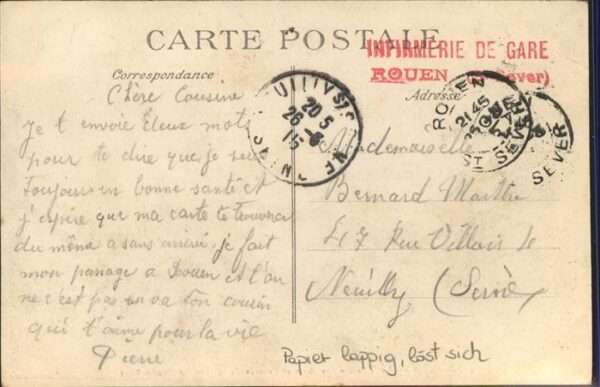 CARTE POSTALE
INFIRMERIE DE GARE
ROUEN (St Sever)
Correspondance
Adresse
Chère Cousine
Je t envoie deux mots
pour te dire que je suis
toujours en bonne santé et
j'espère que ma carte te trouvera
du même a sans arrivé. je fait
mon passage a Rouen et l'on
ne s'est pas on va ton cousin
qui t'aime pour la vie
Pierre
Mademoiselle
Bernard Marthe
47 Rue Villois le
Neuilly (Seine)
NEUILLY S/SEINE
20 5
26 -6
15
SEINE
ROUEN
21 45
25
ST SEVER
SEVER
Papier lappig, löst sich